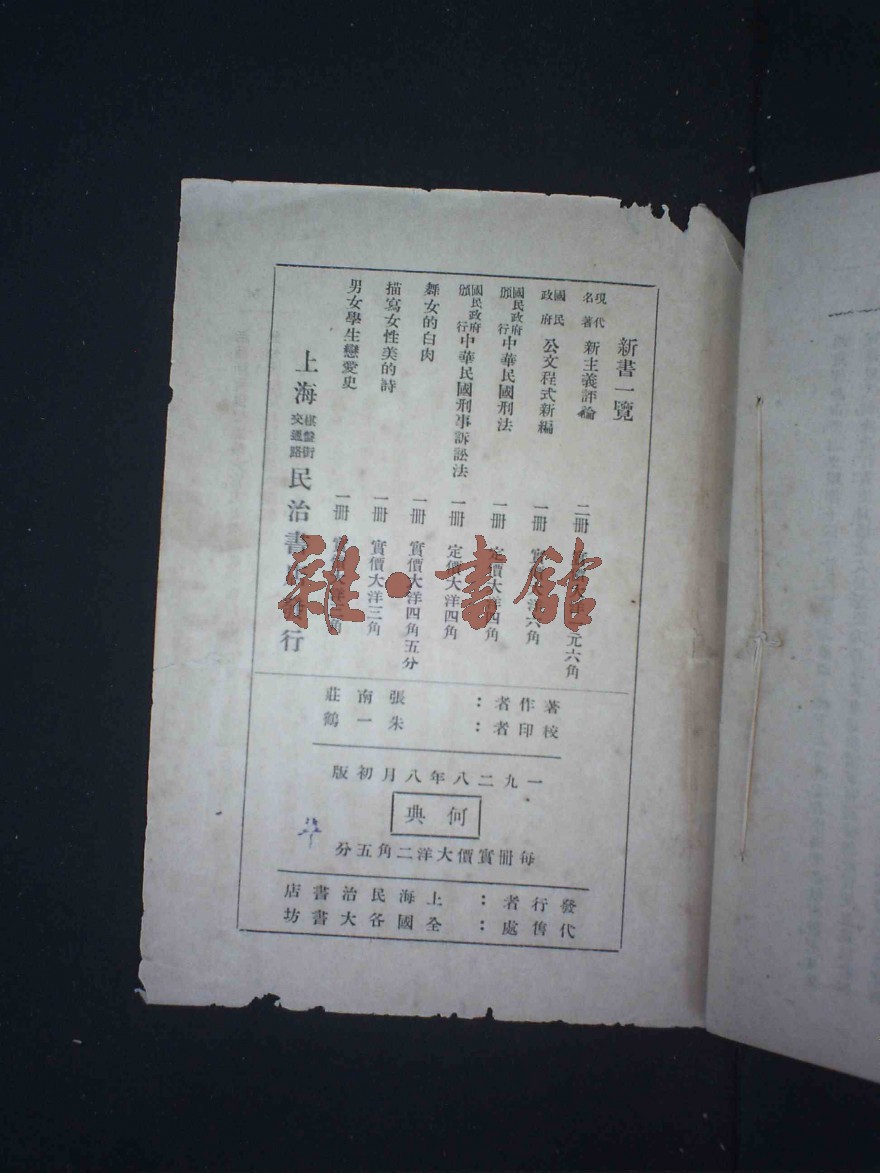 新書一覽
現代名著 新主義評論 二冊 大洋 元六角
國民政府 公文程式新編 一冊 實價大洋六角
國民政府頒行 中華民國刑法 一冊 定價大洋四角
國民政府頒行 中華民國刑事訴訟法 一冊 定價大洋四角
舞女的白肉 一冊 實價大洋四角五分
描寫女性美的詩 一冊 實價大洋三角
男女學生戀愛史 一冊 實價大洋 角
上海 棋盤街交通路 民治書 行
著作者：張南莊
校印者：朱一鶴
一九二八年八月初版
何典
每冊實價大洋二角五分
發行者：上海民治書店
代售處：全國各大書坊
雜·書館